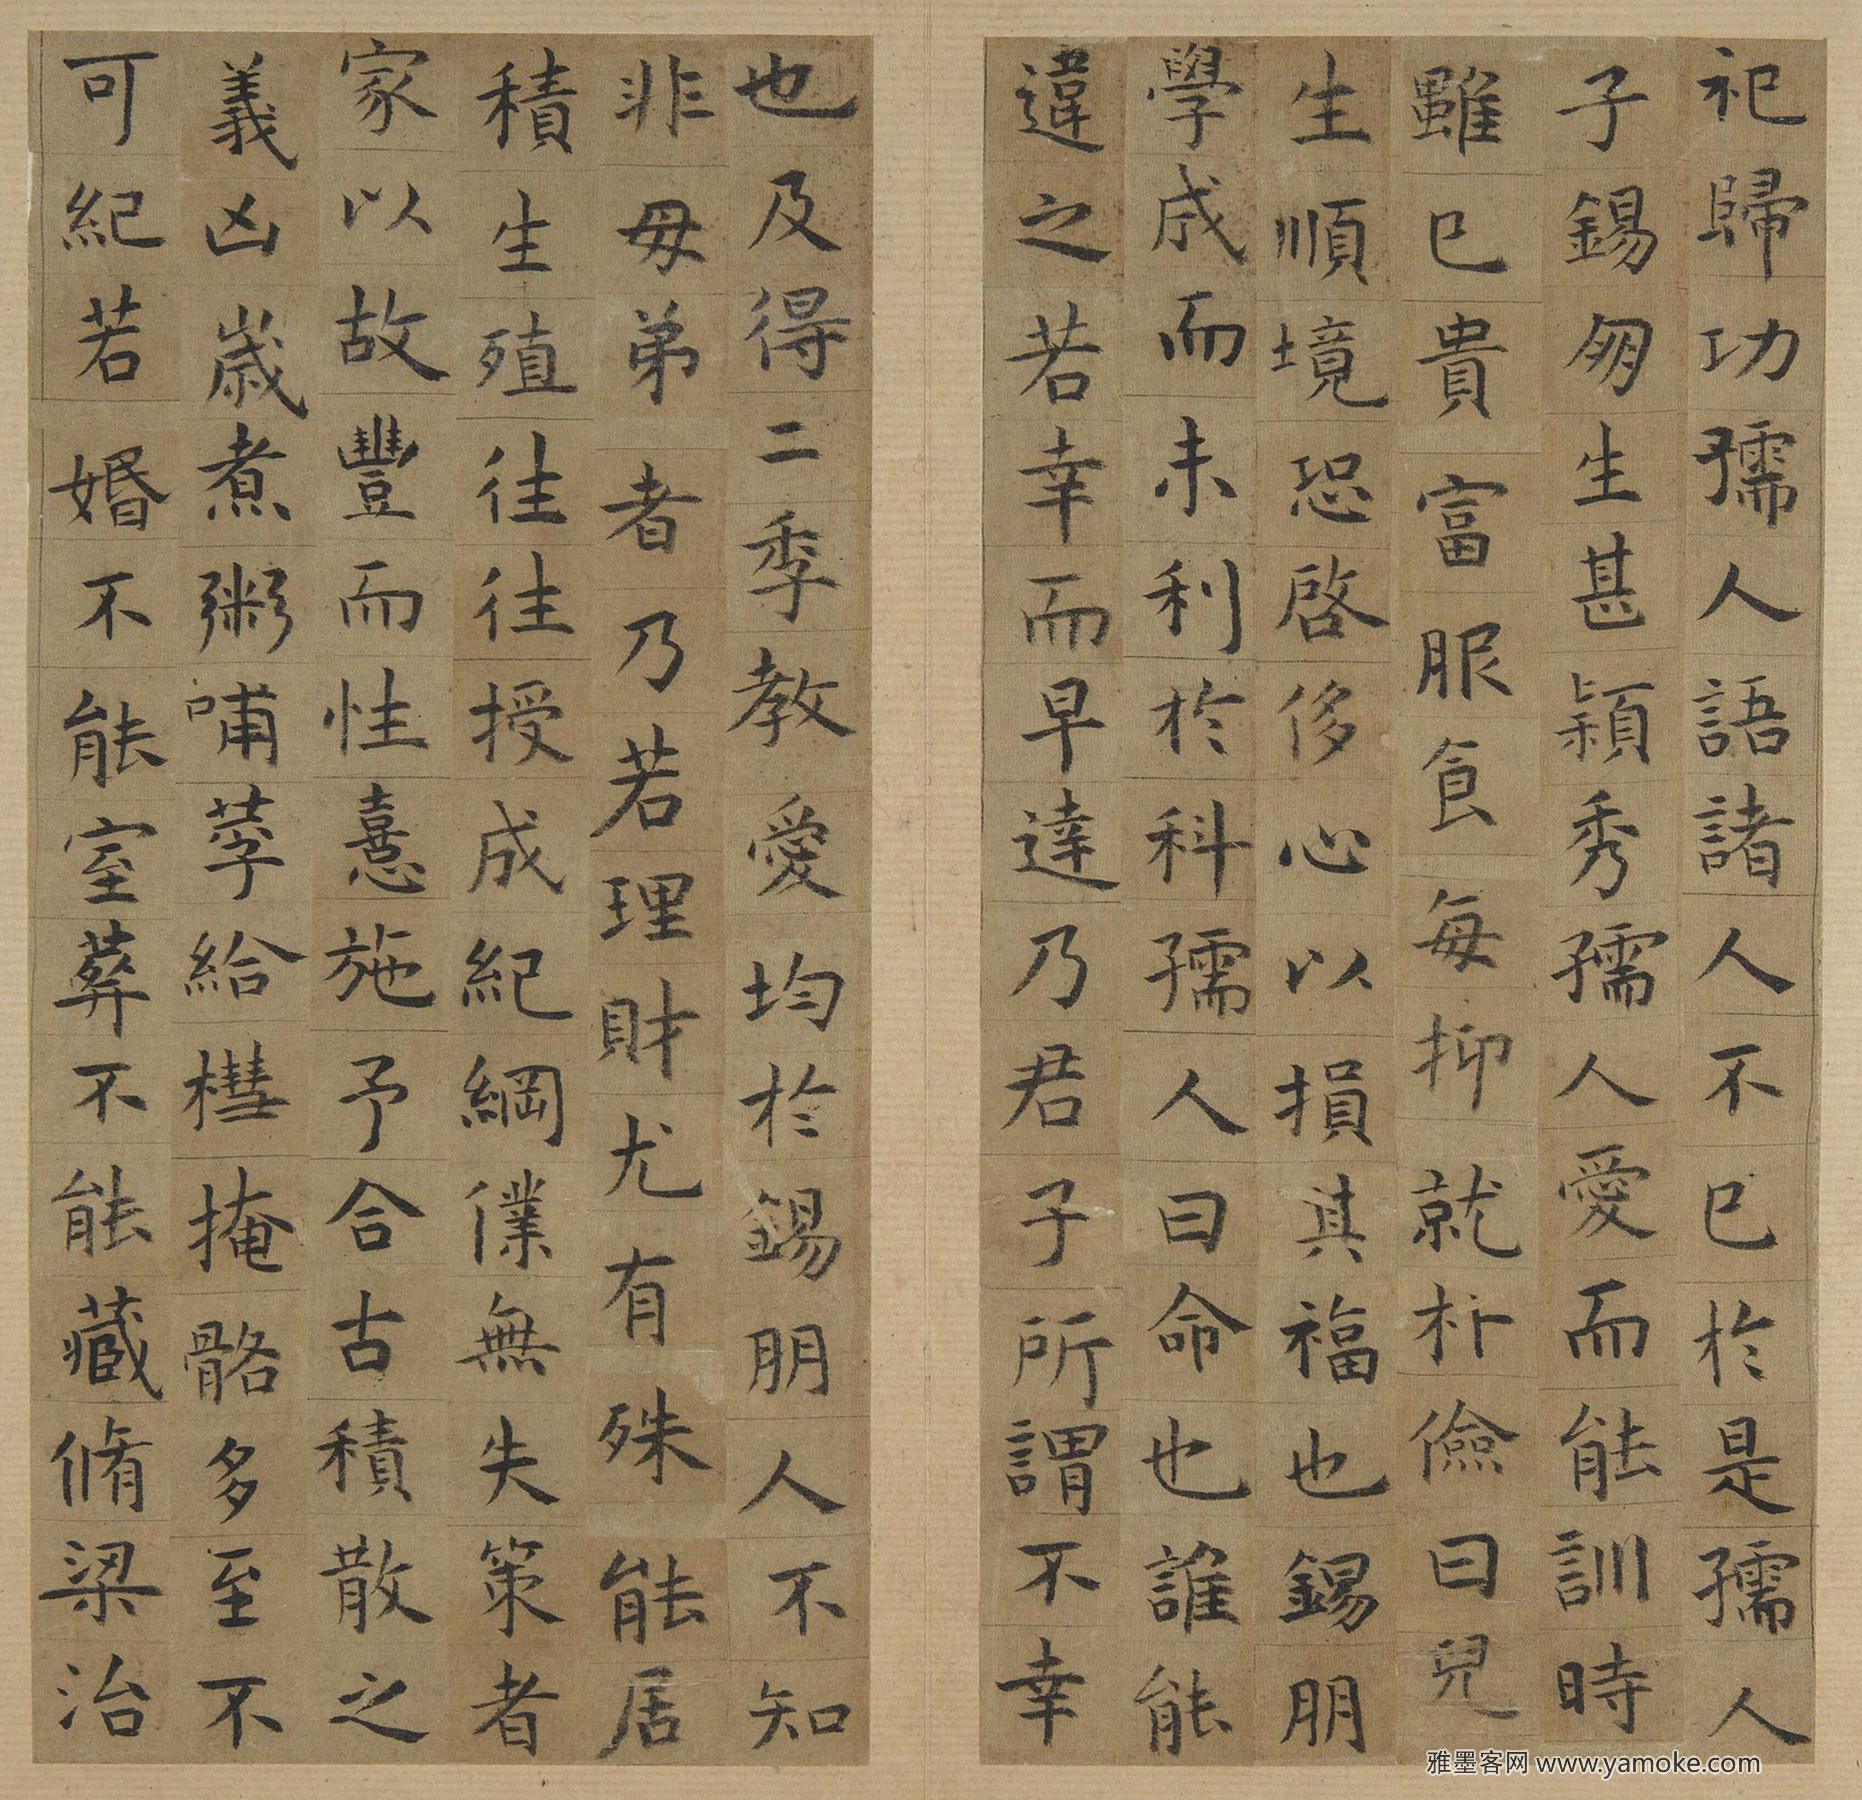 祀歸功孺人語諸人不已於是孺人
子錫朋生甚穎秀孺人愛而能訓時
雖已貴富服食每抑就朴儉曰兒
生順境恐啓侈心以損其福也錫朋
學成而未利於科孺人曰命也誰能
違之若幸而早達乃君子所謂不幸
也及得二季教愛均於錫朋人不知
非毋弟者乃若理財尤有殊能居
積生殖往往授成紀綱僕無失策者
家以故豐而性憙施予合古積散之
義凶嵗煮粥哺莩給槥掩骼多至不
可紀若婚不能室葬不能藏脩梁治
雅墨客网 www.yamoke.com